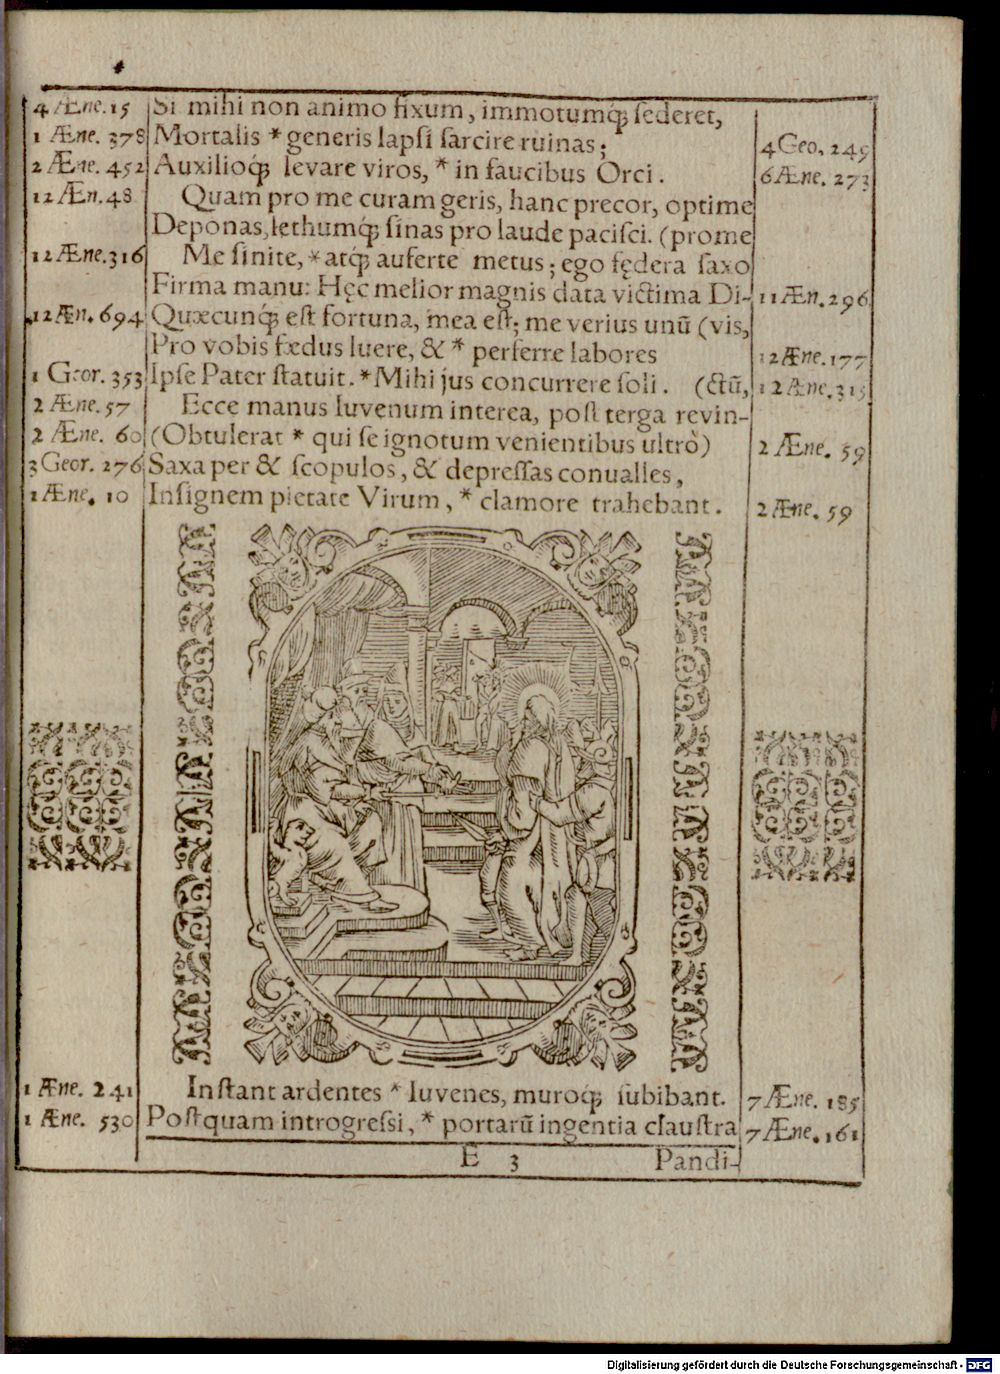 4 Æne. 15 Si mihi non animo fixum, immotumq́; ſederet,
1 Æne. 378 Mortalis * generis lapſi ſarcire ruinas; 4 Geo. 249
2 Æne. 452 Auxilioq́; levare viros, * in faucibus Orci. 6 Æne. 273
12 Æn. 48 Quam pro me curam geris, hanc precor, optime
Deponas, lethumq́; ſinas pro laude paciſci. (pro me
12 Æne. 316 Me ſinite, * atq́; auferte metus; ego fędera faxo
Firma manu: Hęc melior magnis data victima Di- 11 Æn. 296
12 Æn. 694 Quæcunq́; eſt fortuna, mea eſt; me verius unũ (vis,
Pro vobis fœdus luere, & * perferre labores 12 Æne. 177
1 Geor. 353 Ipſe Pater ſtatuit. * Mihi jus concurrere ſoli. (ctũ, 12 Æne. 315
2 Æne. 57 Ecce manus Iuvenum interea, poſt terga revin-
2 Æne. 60 (Obtulerat * qui ſe ignotum venientibus ultrò) 2 Æne. 59
3 Geor. 276 Saxa per & ſcopulos, & depreſſas conualles,
1 Æne. 10 Inſignem pietate Virum, * clamore trahebant. 2 Æne. 59
1 Æne. 241 Inſtant ardentes * Iuvenes, muroq́; ſubibant. 7 Æne. 185
1 Æne. 530 Poſtquam introgreſsi, * portarũ ingentia clauſtra 7 Æne. 161
E 3 Pandi-
Digitalisierung gefördert durch die Deutsche Forschungsgemeinschaft - DFG